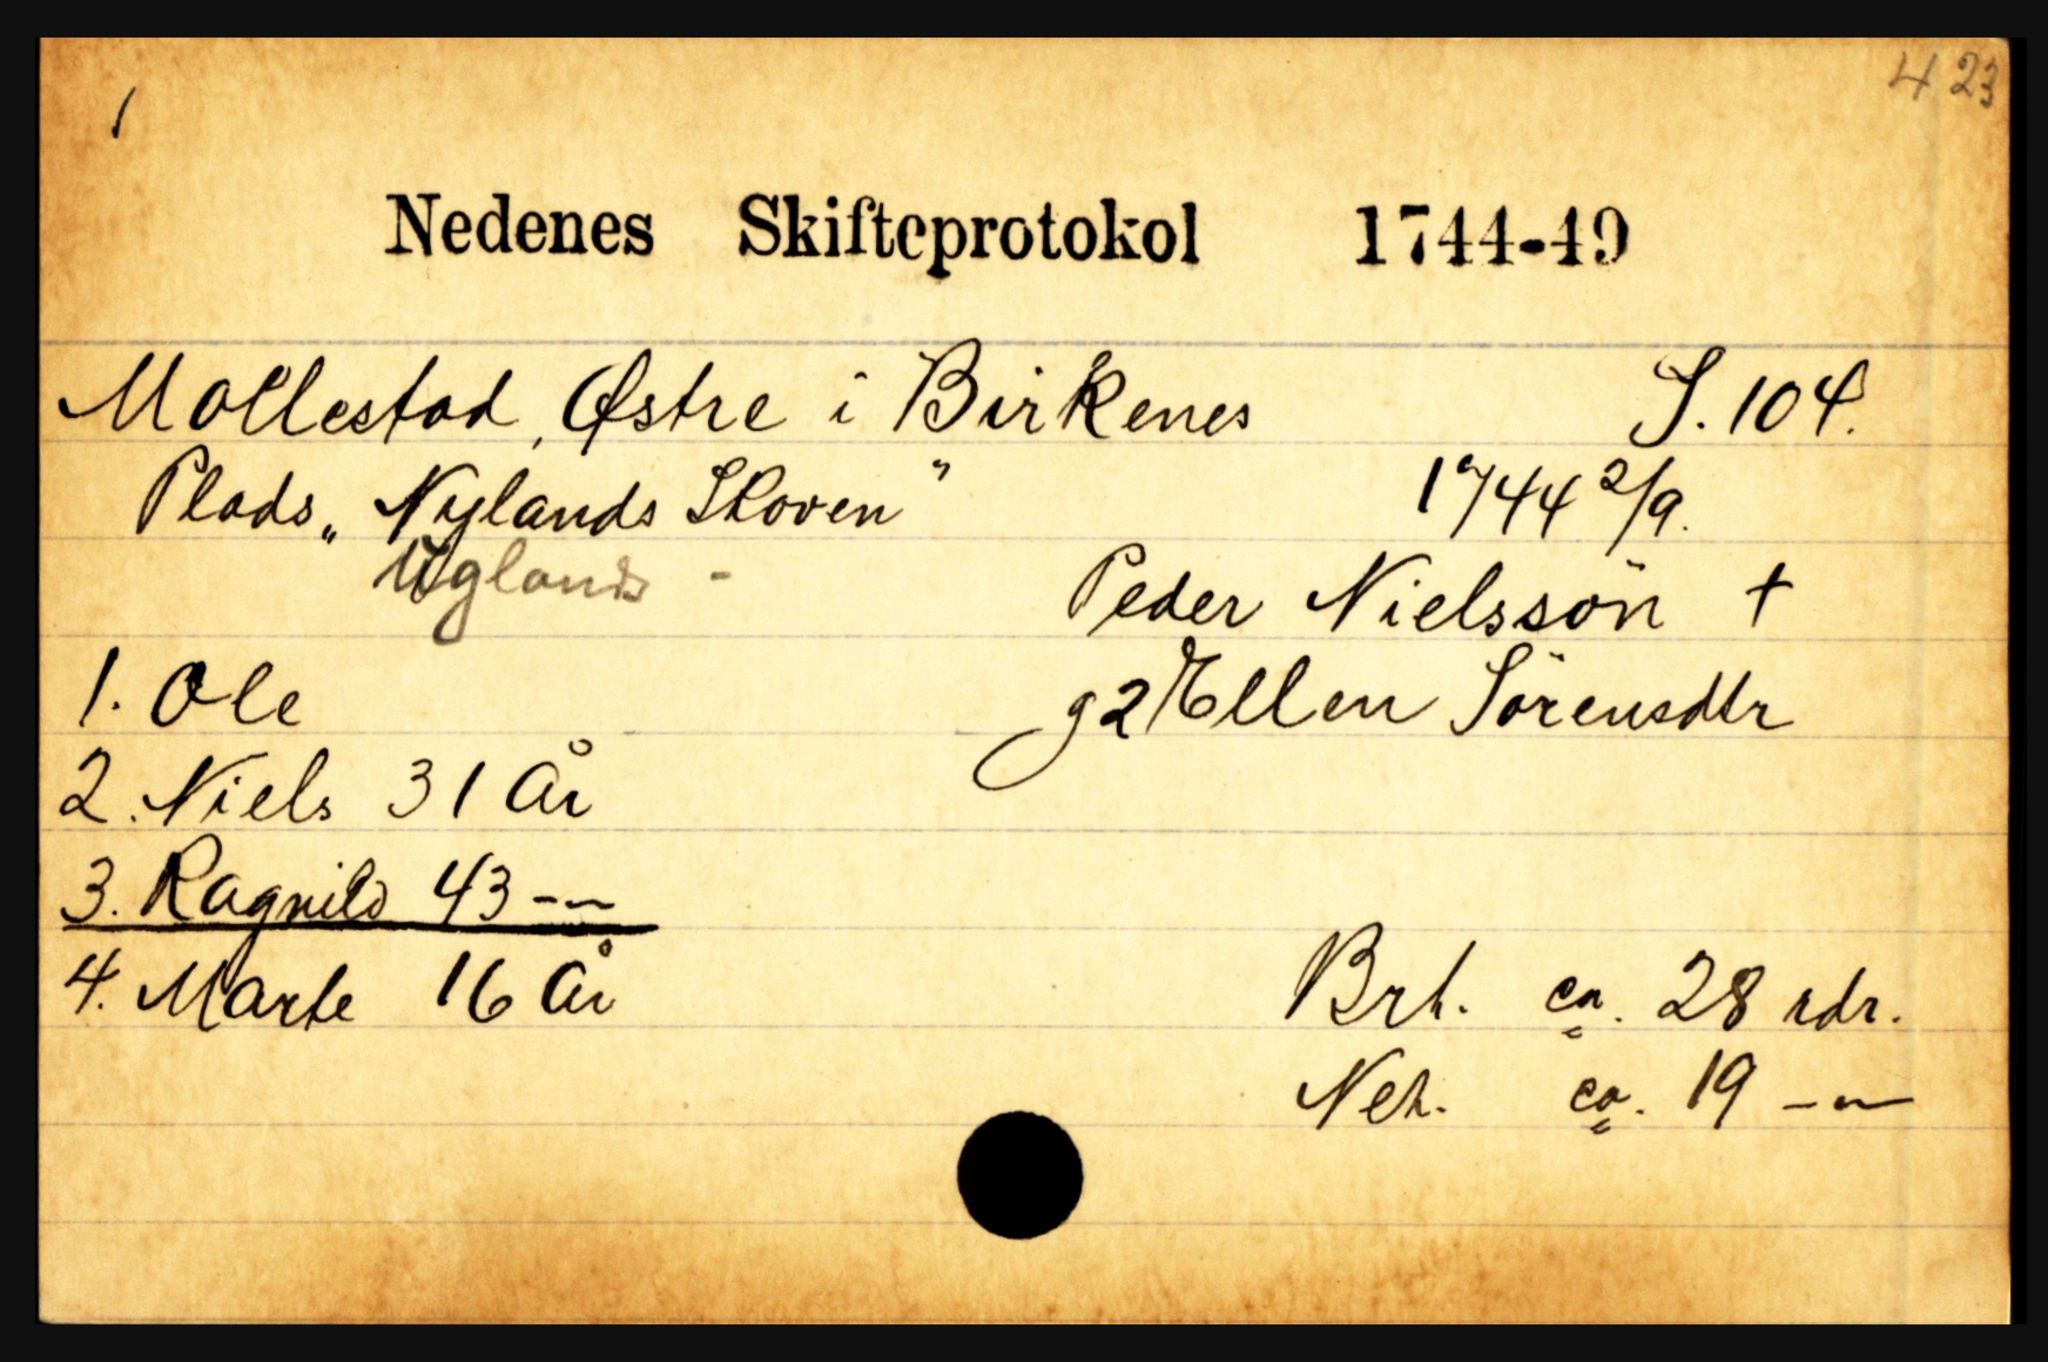 423
1
Nedenes Skifteprotokol 1744-49
Mollestad, Østre i Birkenes S. 104.
Plads „Nylands Skoven" 1744 2/9.
Uglands -
Peder Nielssön †
1. Ole g2 Ellen Sörensdtr
2. Niels 31 år
3. Ragnild 43 -~
4. Marte 16 år Brt. ca. 28 rdr.
Net. ca. 19 -~